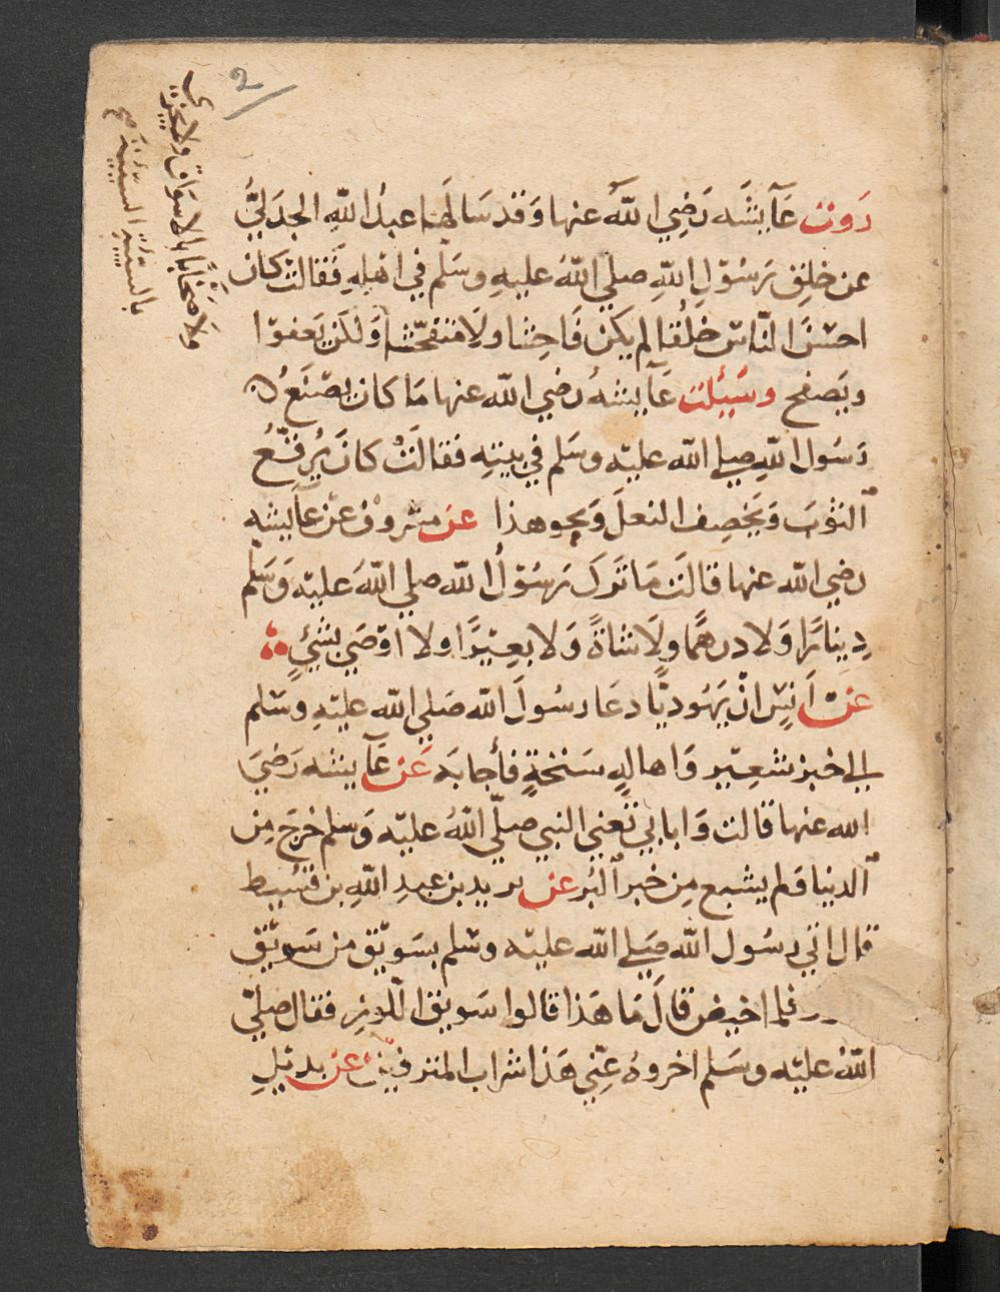 2
ولا صخابا بالاسواق ولا يجزي
بالسيئة السيئة صح
روت عآيشَه رَضِي اللَّه عنها وَقد سَالهَا عبدُ اللّهِ الجدَليُّ
عن خلق رَسُوْلِ اللّهِ صلي اللّهُ عليهِ وسَلم في اهْلِهِ فَقالت كان
احسَنَ النّاسِ خلُقا لم يكن فَاحِشا ولا متفحّشا وَلكن يَعفوْا
ويَصفح وسَيئلت عَآيشهُ رضي اللّه عنها مَا كان يصْنَعُ
رَسُول اللّهِ صلي اللّه عليْه وسَلم في بيْتِه فقالَتْ كانَ يُرقّعُ
الثوْبَ وَيَخصِف النعلَ وَنحو هذا عن مسْروْق عنْ عآيشه
رضي اللّه عنها قالَت مَا تَركَ رَسُوْلُ اللّه صلي اللّهُ عليْه وَسَلم
دِينارًا وَلا درهمًا ولَا شاةً وَلا بعِيْرًا ولا اوْصَي بشَيْءٍ
عنْ اَنسٍ انْ يَهُوديًّا دعَا رسُولَ اللّه صَلي اللّه عليْهِ وسَلم
الي خبز شعِيْرٍ وَاهالةٍ سَنخةٍ فأجابَه عَن عآيشه رَضيَ
الله عنها قالت وَا بابي تعْني النبي صلّي اللّهُ عليْه وَسلم خرَجَ مِن
الدنيا وَلم يشبع مِن خبز البُر عن يزيد بن عبدِ اللّهِ بن قسَيط
قال اتي رسُول اللّه صَلي اللّه عليْه وسَلم بسَويْق من سَويْق
فلما اخيض قالَ مَا هَذا قالوا سَويق اللّوز فقال صلّي
اللّهُ عليْه وسَلم اخروهُ عنِّي هَذا شرَاب المترفيْن عن بديْلِ